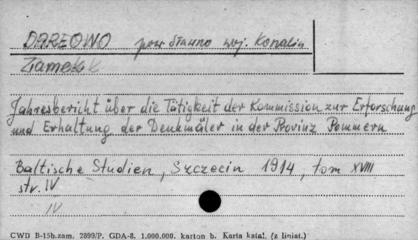 DARŁOWO pow Sławno woj. Koszalin
Zamek
Jahresbericht über die Tätigkeit der Kommission zur Erforschung
und Erhaltung der Denkmäler in der Provinz Pommern
Baltische Studien, Szczecin 1914, tom XVIII
str. IV
IV
CWD B-15b.zam. 2899/P. GDA-8. 1.000.000. karton b. Karta katal. (z liniat.)